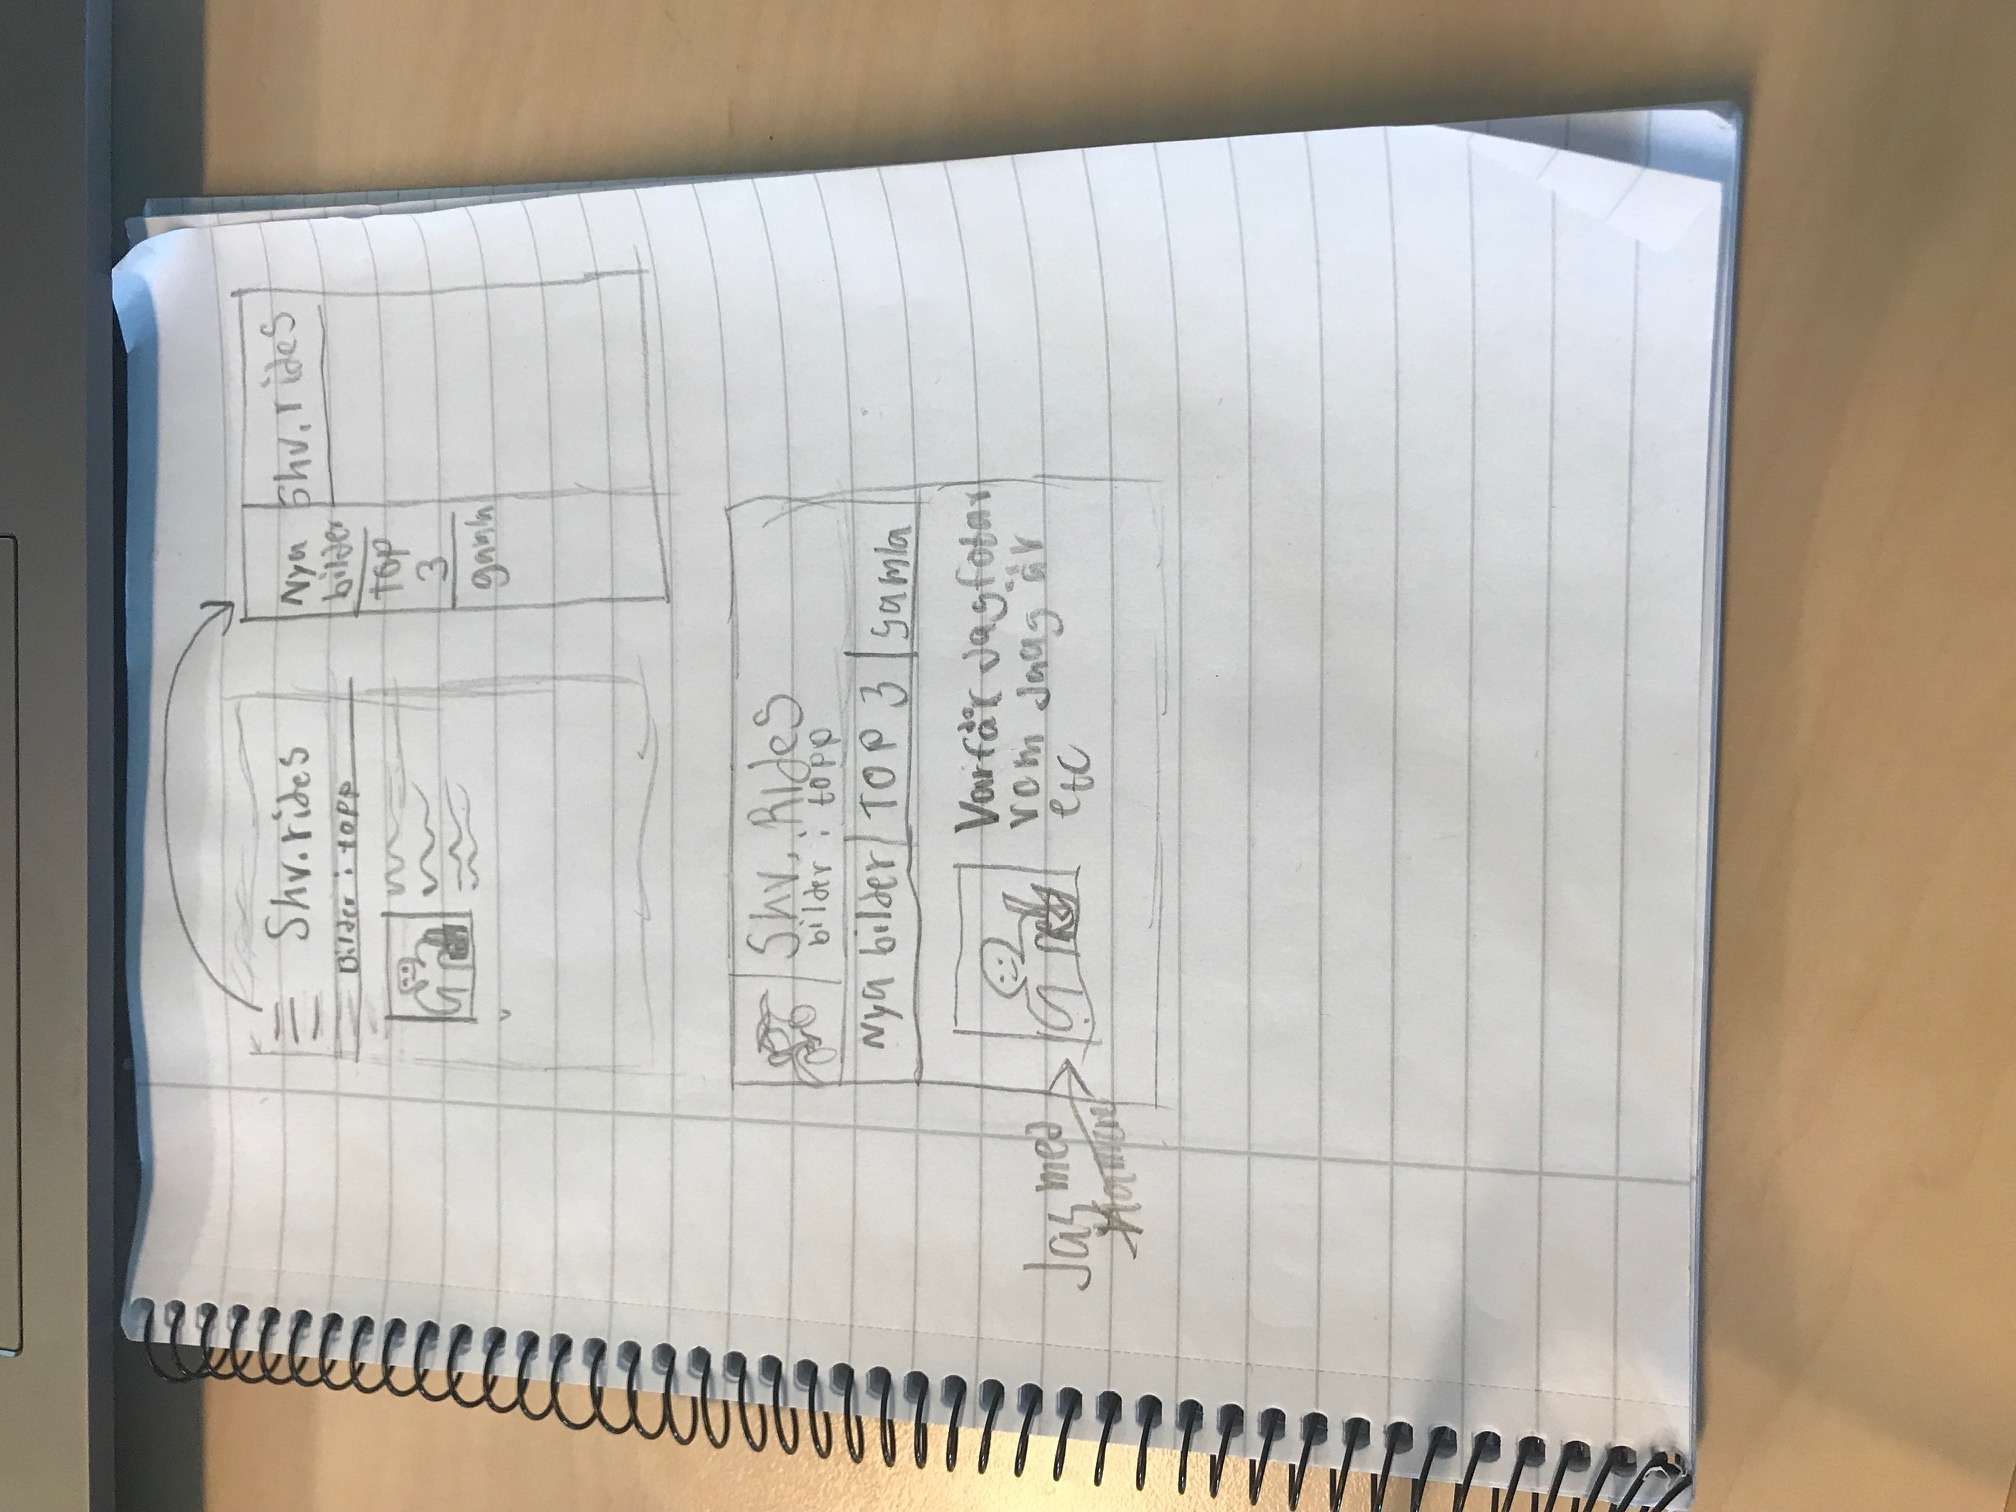 Shv.rides
Bilder i topp
Nya
bilder
TOP
3
gamla
Shv.rides
Shv. Rides
bilder i topp
Nya bilder
TOP 3
gamla
Varför jag fotar
vem jaag är
etc
Jag med